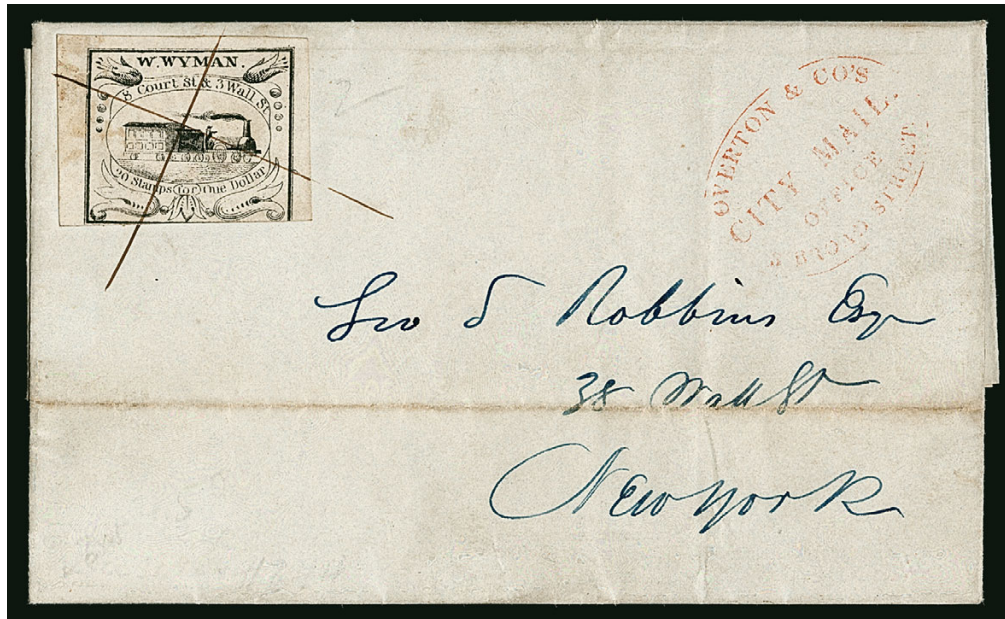 W. WYMAN.
8 Court St & 3 Wall St.
20 Stamps for One Dollar
OVERTON & CO'S
CITY MAIL.
OFFICE
BROAD STREET
Geo S Robbins Esqr
38 Wall St
New York